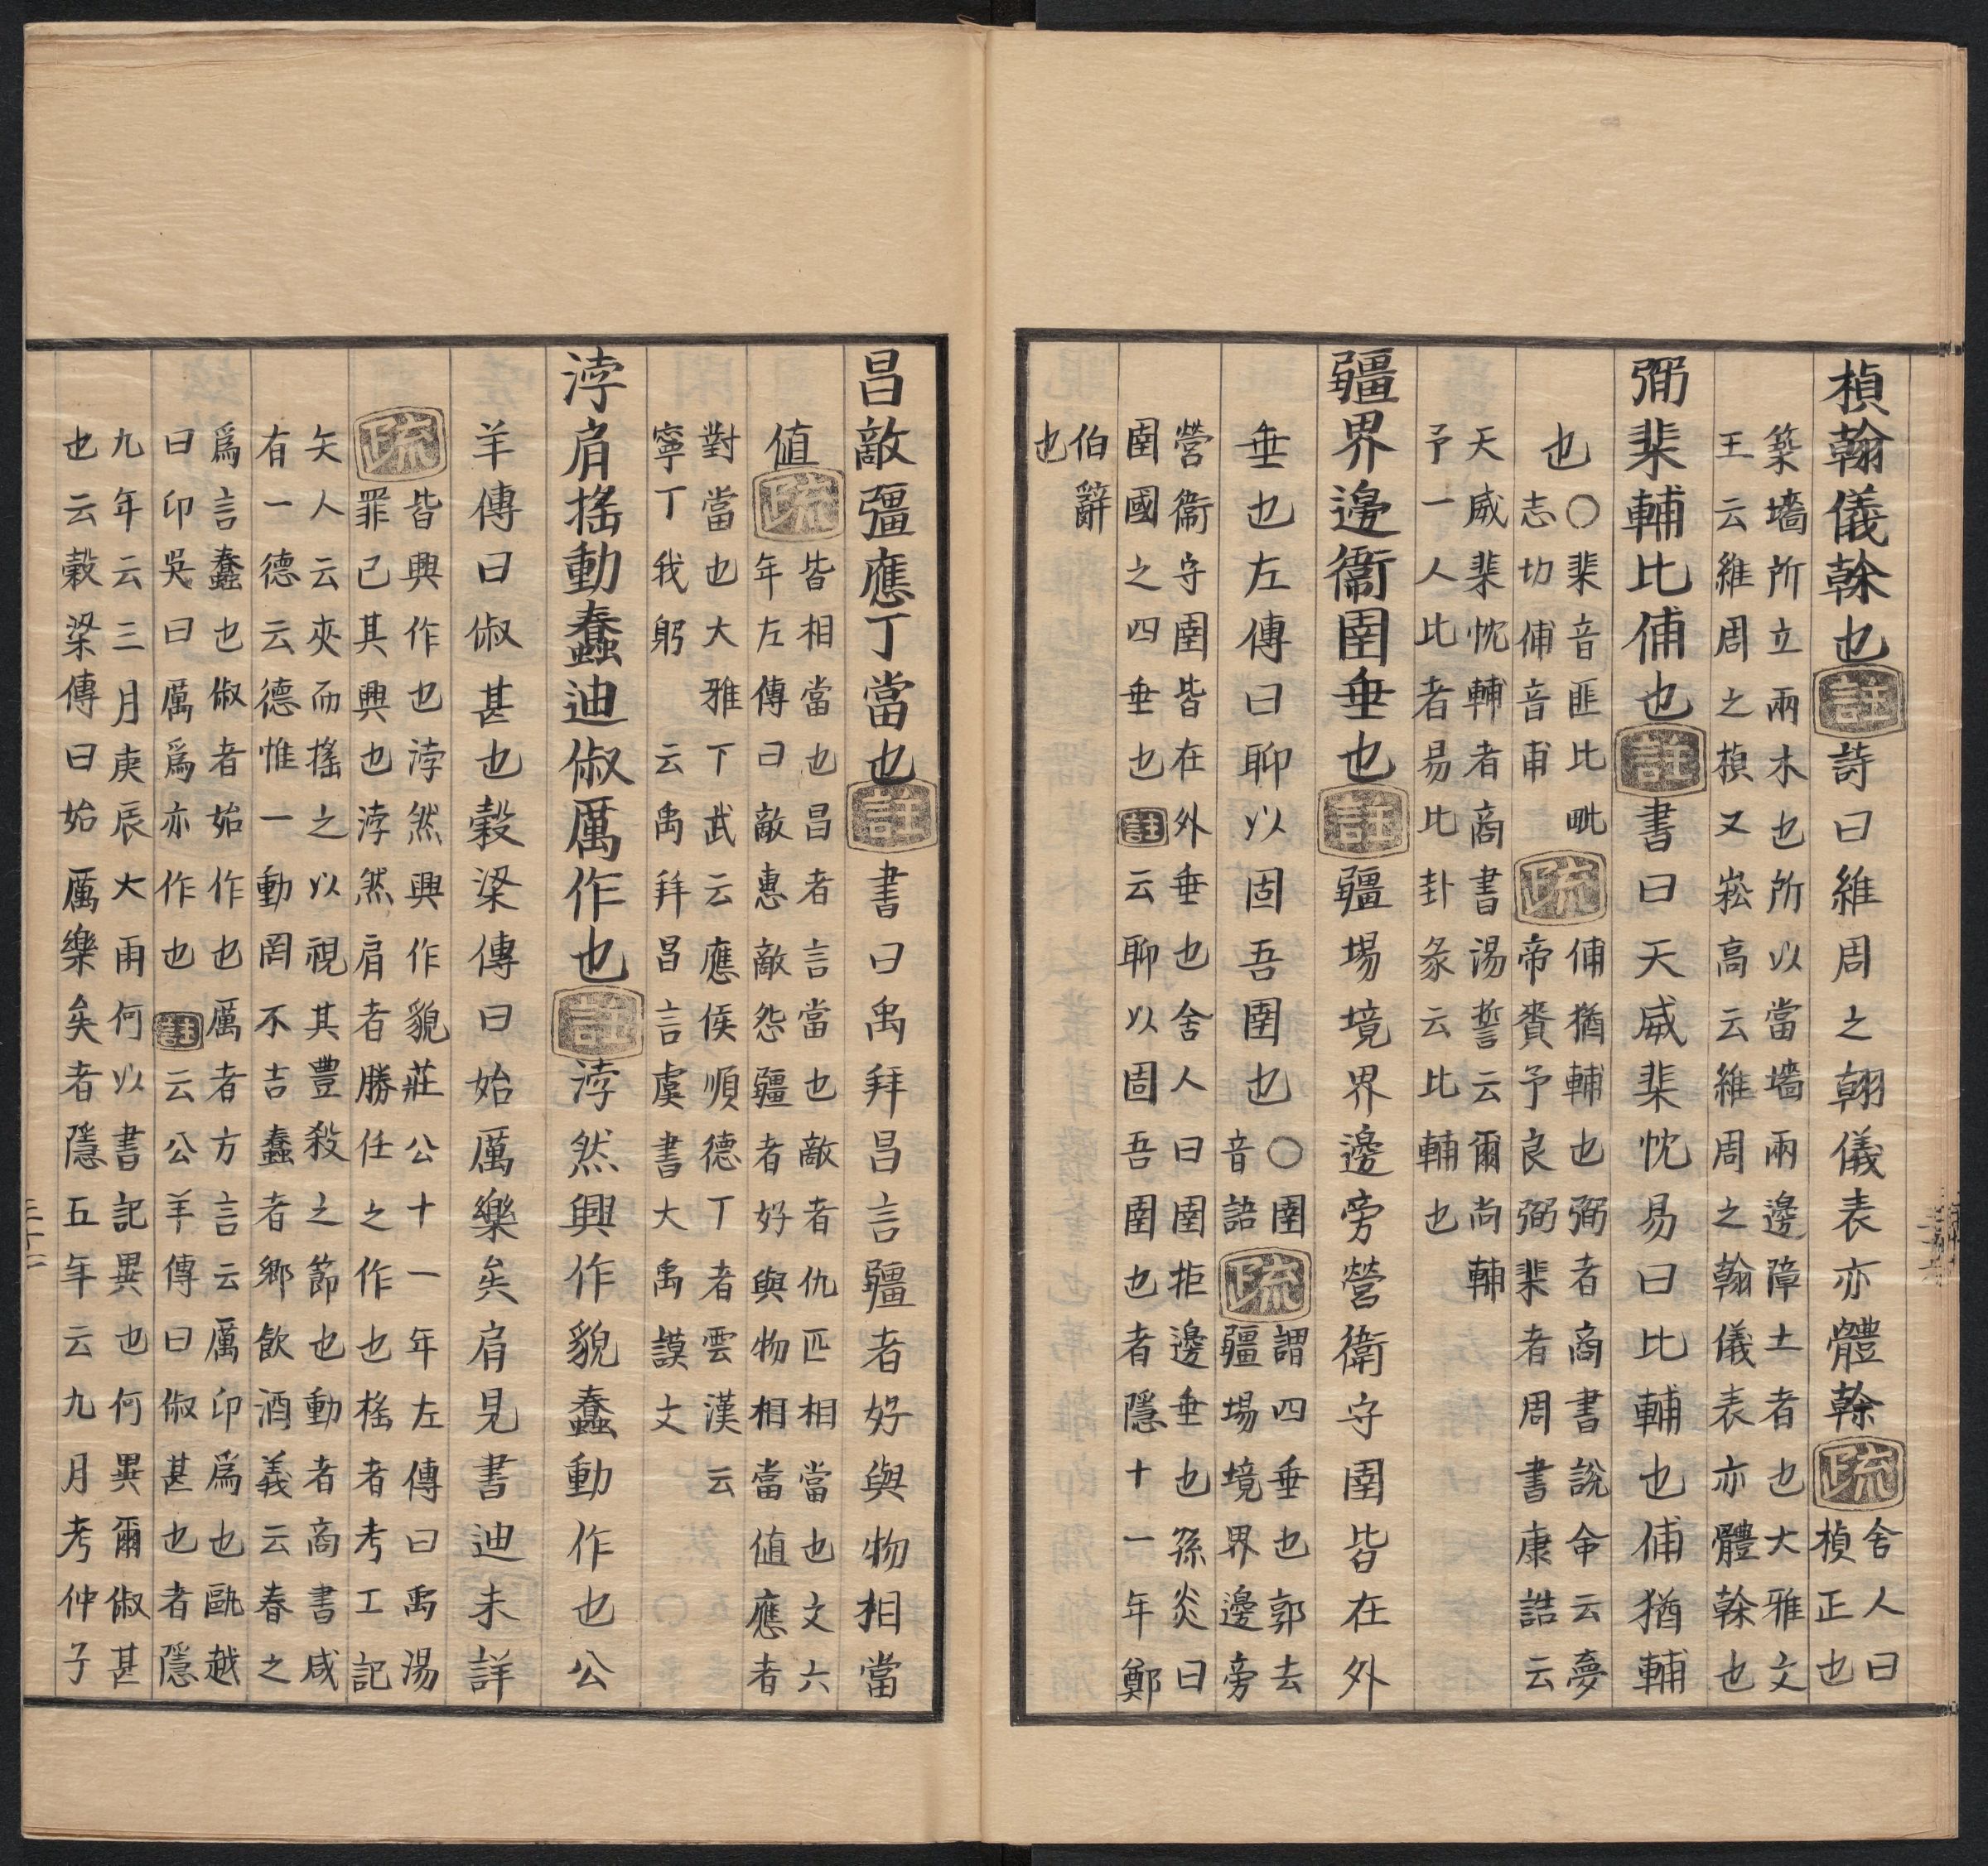 楨翰儀榦也註詩曰維周之翰儀表亦體榦疏
舍人曰
楨正也
築墻所立兩木也所以當墻兩邊障土者也大雅文
王云維周之楨又崧高云維周之翰儀表亦體榦也
弼棐輔比俌也註書曰天威棐忱易曰比輔也俌猶輔
也
○棐音匪比毗
志切俌音甫
疏
俌猶輔也弼者商書說命云夢
帝賚予良弼棐者周書康誥云
天威棐忱輔者商書湯誓云爾尚輔
予一人比者易比卦彖云比輔也
疆界邊衞圉垂也註疆場境界邊旁營衛守圉皆在外
垂也左傳曰聊以固吾圉也
○圉
音語
疏
謂四垂也郭去
疆場境界邊旁
營衞守圉皆在外垂也舍人曰圉拒邊垂也孫炎曰
圉國之四垂也註云聊以固吾圉也者隱十一年鄭
伯辭
也
昌敵彊應丁當也註書曰禹拜昌言彊者好與物相當
值
疏
皆相當也昌者言當也敵者仇匹相當也文六
年左傳曰敵惠敵怨彊者好與物相當值應者
對當也大雅下武云應侯順德丁者雲漢云
寧丁我躬云禹拜昌言虞書大禹謨文
浡肩搖動蠢迪俶厲作也註浡然興作貌蠢動作也公
羊傳曰俶甚也穀梁傳曰始厲樂矣肩見書迪未詳
疏
皆興作也浡然興作貌莊公十一年左傳曰禹湯
罪己其興也浡然肩者勝任之作也榣者考工記
矢人云夾而搖之以視其豐殺之節也動者商書咸
有一德云德惟一動罔不吉蠢者鄉飲酒義云春之
爲言蠢也俶者始作也厲者方言云厲卬爲也甌越
曰卬吳曰厲爲亦作也註云公羊傳曰俶甚也者隱
九年云三月庚辰大雨何以書記異也何異爾俶甚
也云穀梁傳曰始厲樂矣者隱五年云九月考仲子